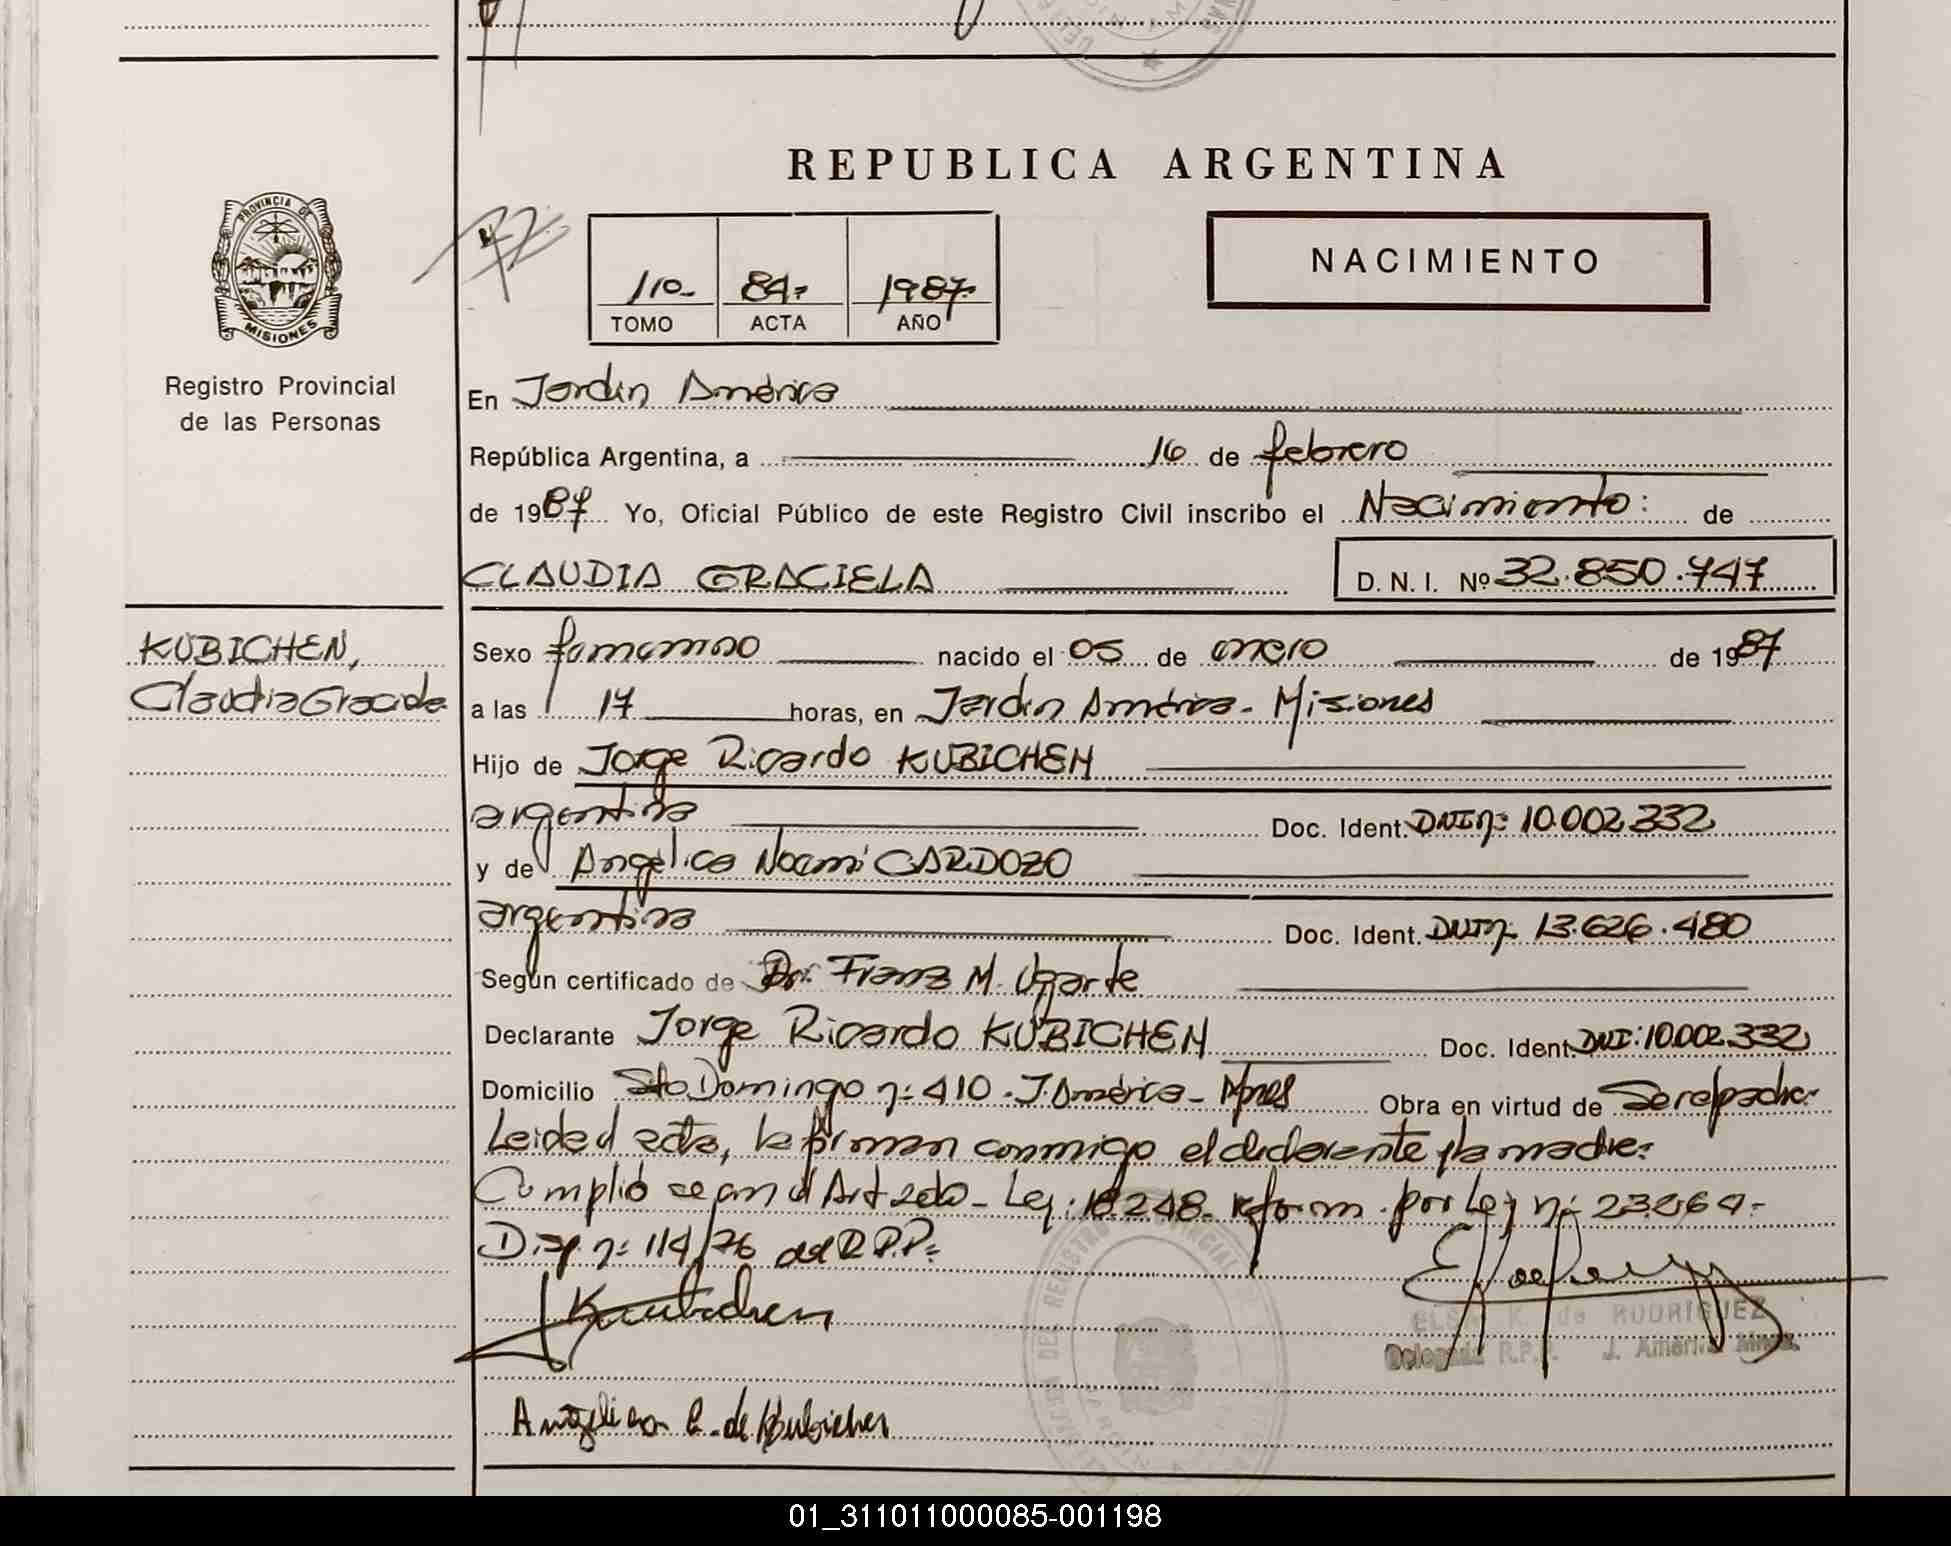 REPUBLICA ARGENTINA
PROVINCIA DE
MISIONES
Registro Provincial
de las Personas
110- 84= 1987-
TOMO ACTA AÑO
NACIMIENTO
En Jardin América
República Argentina, a 16 de febrero
de 1987 Yo, Oficial Público de este Registro Civil inscribo el Nacimiento: de
CLAUDIA GRACIELA D. N. I. Nº 32.850.747
KUBICHEN,
Claudia Graciela
Sexo femenino nacido el 05 de enero de 1987
a las 17 horas, en Jardin América- Misiones
Hijo de Jorge Ricardo KUBICHEN
argentina Doc. Ident. DNI n: 10.002.332
y de Angelica Noemi CARDOZO
argentina Doc. Ident. DNI n: 13.626.480
Según certificado de Dr. Franz M. Ugarte
Declarante Jorge Ricardo KUBICHEN Doc. Ident. DNI: 10.002.332
Domicilio Sto Domingo n: 410 - J. América - Mnes Obra en virtud de
Leida el acta, la firman conmigo el declarante y la madre:
Cumplió según el Art 2do - Ley: 18.248- reform. por Ley n: 23.264-
Disp. n: 114/76 del R.P.P=
Kubichen
ELSA K. de RODRIGUEZ
Delegada R.P.P. J. América Mnes.
Angelica C. de Kubichen
01_311011000085-001198